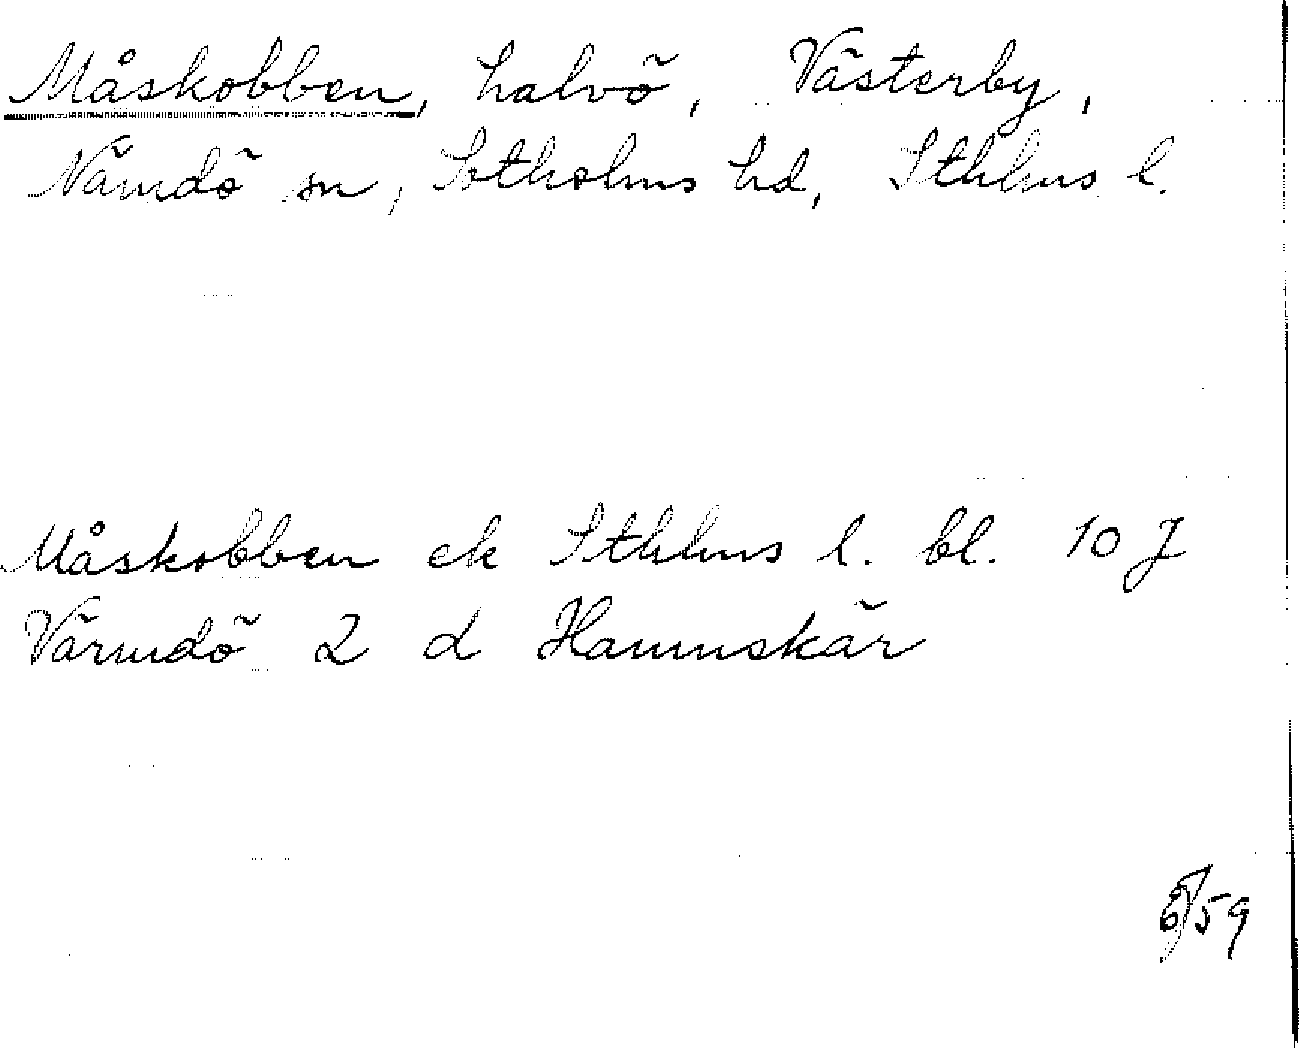 Måskobben, halvö, Västerby,
Nämdö sn, Sotholms hd, Sthlms l.
Måskobben ek Sthlms l. bl. 10 J
Värmdö 2 d Hamnskär
59